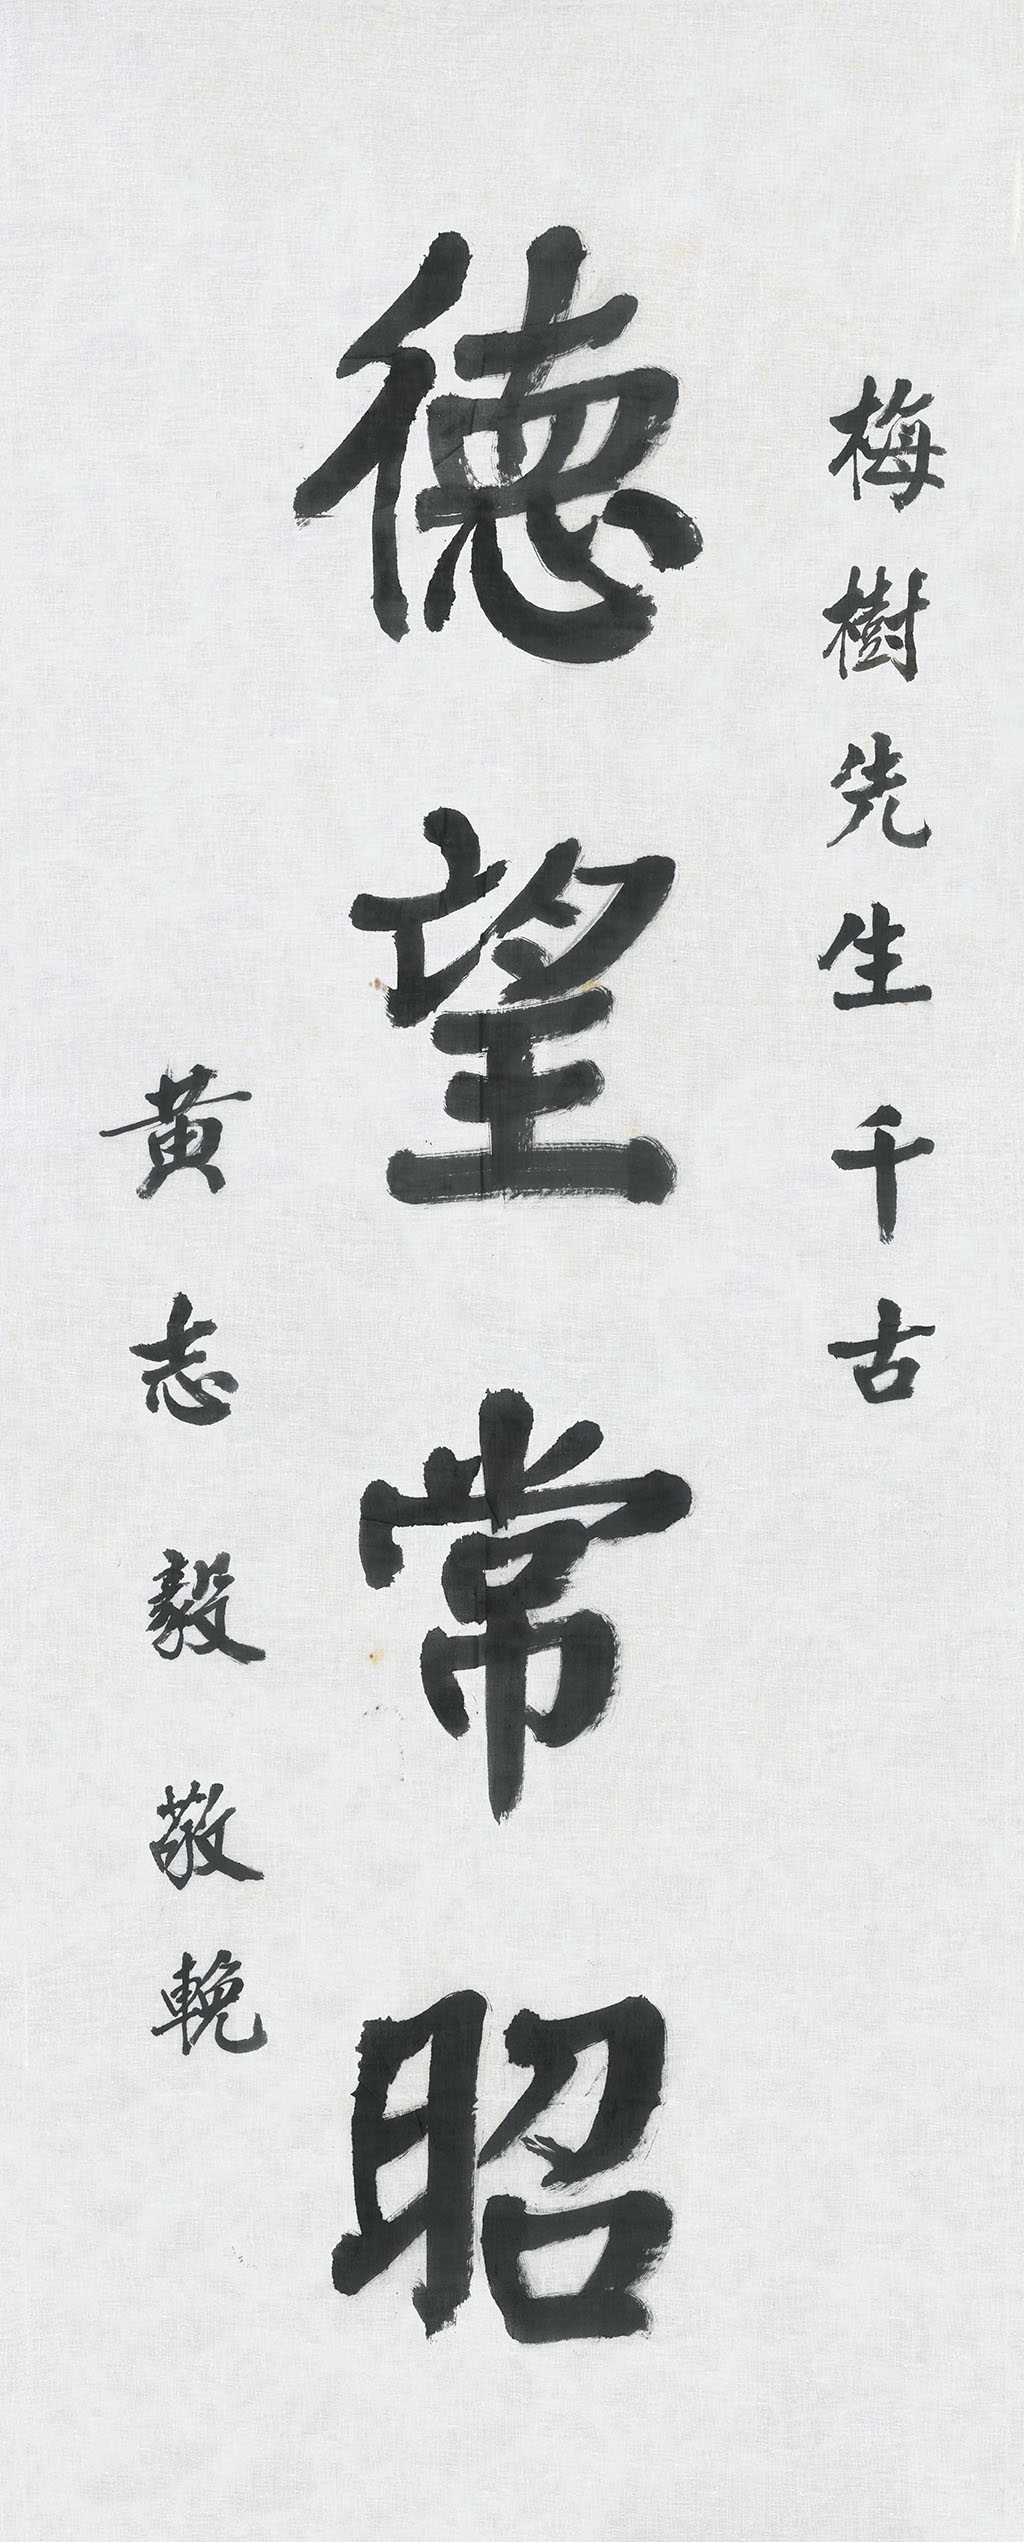 梅樹先生千古
德望常昭
黄志毅敬輓